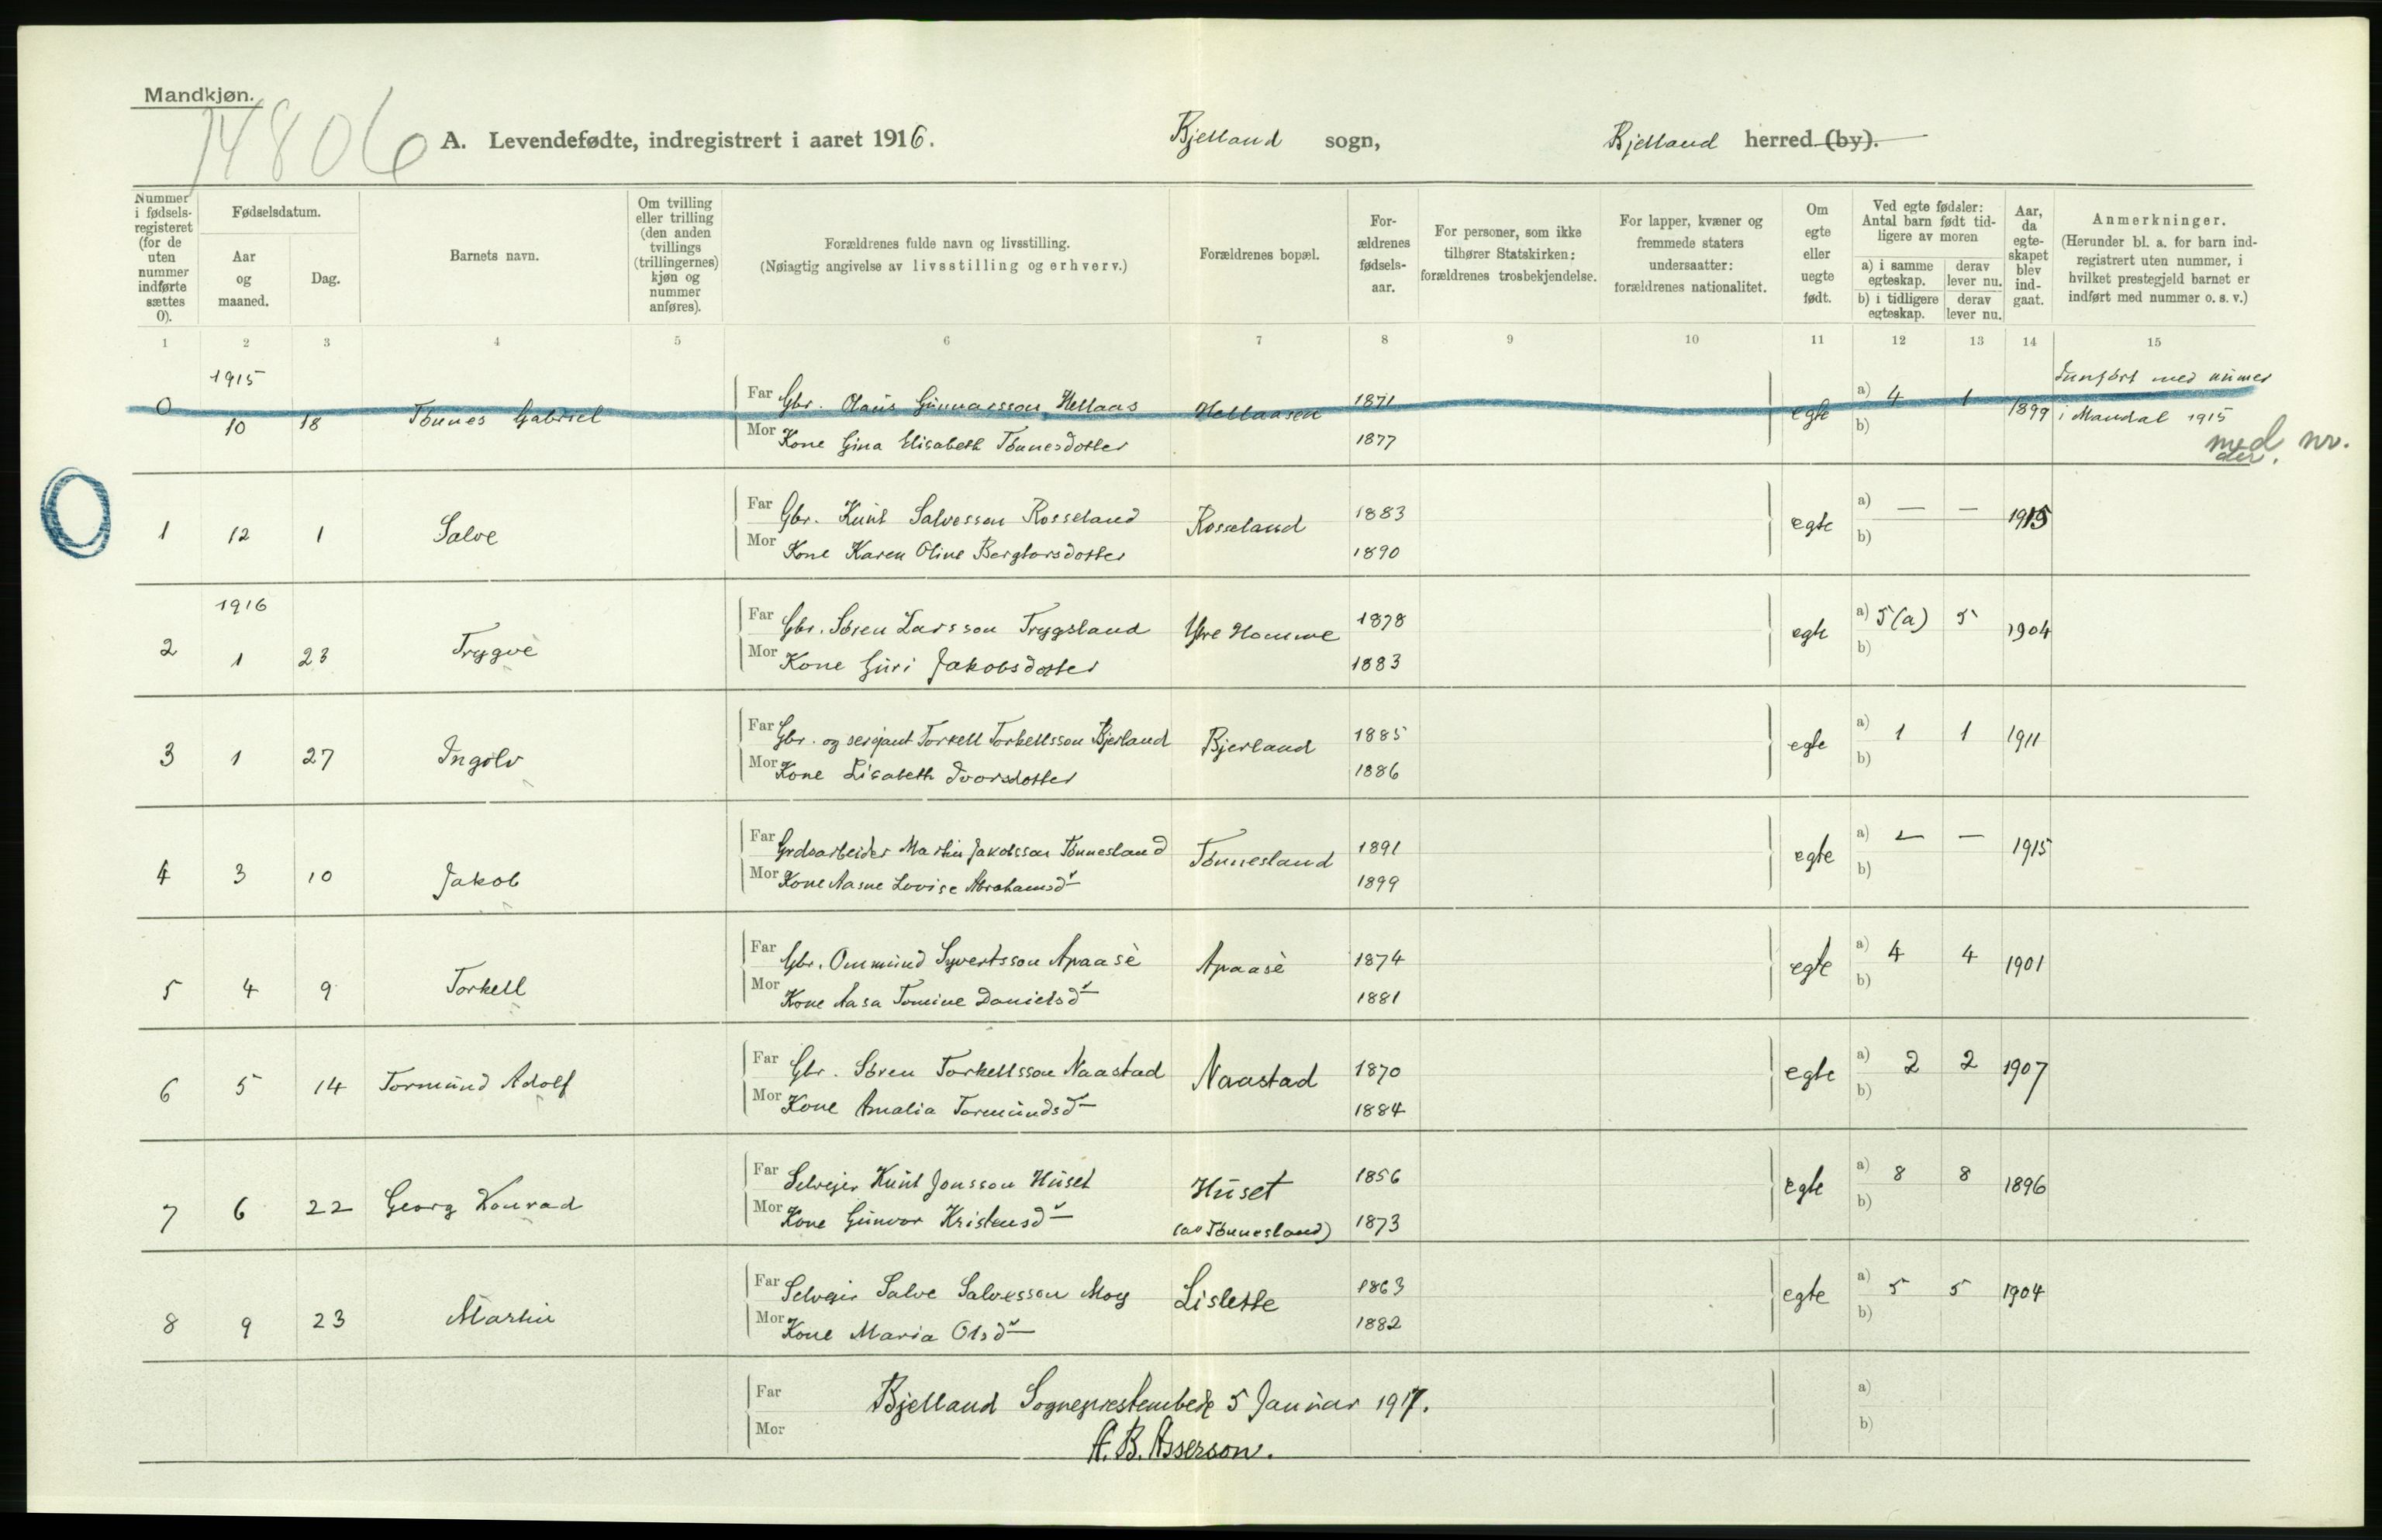 Mandkjøn.
14806
A. Levendefødte, indregistrert i aaret 1916. Bjelland sogn, Bjelland herred (by).
Nummer i fødselsregisteret (for de uten nummer indførte sættes 0).
Fødselsdatum.
Aar og maaned.
Dag.
Barnets navn.
Om tvilling eller trilling (den anden tvillings (trillingernes) kjøn og nummer anføres).
Forældrenes fulde navn og livsstilling.
(Nøiagtig angivelse av livsstilling og erhverv.)
Forældrenes bopæl.
Forældrenes fødselsaar.
For personer, som ikke tilhører Statskirken: forældrenes trosbekjendelse.
For lapper, kvæner og fremmede staters undersaatter: forældrenes nationalitet.
Om egte eller uegte født.
Ved egte fødsler: Antal barn født tidligere av moren
a) i samme egteskap. derav lever nu.
b) i tidligere egteskap. derav lever nu.
Aar, da egteskapet blev indgaat.
Anmerkninger.
(Herunder bl. a. for barn indregistrert uten nummer, i hvilket prestegjeld barnet er indført med nummer o. s. v.)
1 2 3 4 5 6 7 8 9 10 11 12 13 14 15
1915
0 10 18 Tönnes Gabriel
Far Gbr. Olaus Gunnarsson Hellaas Hellaasen 1871 egte a) 4 1 1899
Mor Kone Gina Elisabeth Tönnesdotter 1877 b)
med i Mandal 1915
med nr.
der.
1 12 1 Salve
Far Gbr. Knut Salvesson Rosseland Rosseland 1883 egte a) — — 1915
Mor Kone Karen Oline Bergtorsdotter 1890 b)
1916
2 1 23 Trygve
Far Gbr. Sören Larsson Trygsland Ytre Homme 1878 egte a) 5(a) 5 1904
Mor Kone Guri Jakobsdotter 1883 b)
3 1 27 Ingolv
Far Gbr. og sersjant Torkell Torkellsson Bjerland Bjerland 1885 egte a) 1 1 1911
Mor Kone Lisabeth Ivarsdotter 1886 b)
4 3 10 Jakob
Far Grdsarbeider Martin Jakobsson Tönnesland Tönnesland 1891 egte a) — — 1915
Mor Kone Aasne Lovise Abrahamsdr 1899 b)
5 4 9 Torkell
Far Gbr. Ommund Syvertsson Apaasè Apaasè 1874 egte a) 4 4 1901
Mor Kone Aasa Tomine Danielsdr 1881 b)
6 5 14 Tormund Adolf
Far Gbr. Sören Torkellsson Naastad Naastad 1870 egte a) 2 2 1907
Mor Kone Amalia Tormundsdr 1884 b)
7 6 22 Georg Konrad
Far Selveier Knut Jonsson Huset Huset 1856 egte a) 8 8 1896
Mor Kone Gunvor Kristensdr (av Tönnesland) 1873 b)
8 9 23 Martin
Far Selveier Salve Salvesson Moy Lislette 1863 egte a) 5 5 1904
Mor Kone Maria Olsdr 1882 b)
Far Bjelland Sogneprestembede 5 Januar 1917. a)
Mor b)
A. B. Asserson.